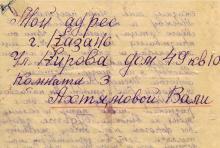 Мой адрес
г. Казань
Ул Кирова дом 49 кв 10
Комната 3
Ахтямовой Вали